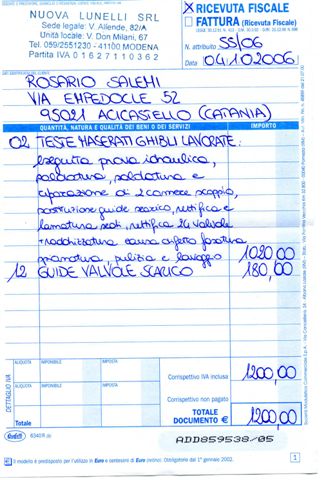 NUOVA LUNELLI SRL
Sede legale: V. Allende, 82/A
Unità locale: V. Don Milani, 67
Tel. 059/2551230 - 41100 MODENA
Partita IVA 01627110362
X RICEVUTA FISCALE
FATTURA (Ricevuta Fiscale)
N. attribuito SS/06
Data 04/10/2006
ROSARIO SALEMI
VIA EMPEDOCLE 52
95021 ACICASTELLO (CATANIA)
QUANTITÀ, NATURA E QUALITÀ DEI BENI O DEI SERVIZI
IMPORTO
02 TESTE MASERATI GHIBLI LAVORATE:
eseguita prova idraulica,
saldatura e
riparazione di 2 camere scoppio,
sostituzione guide scarico, rettifica e
lamatura sedi, rettifica 24 valvole
spianatura, pulizia e lavaggio 1020,00
12 GUIDE VALVOLE SCARICO 180,00
DETTAGLIO IVA
ALIQUOTA IMPONIBILE IMPOSTA ALIQUOTA IMPONIBILE IMPOSTA
Corrispettivo IVA inclusa 1200,00
Corrispettivo non pagato
Totale
TOTALE DOCUMENTO € 1200,00
Buffetti 6340R
ADD859538/05
Il modello è predisposto per l'utilizzo in Euro e centesimi di Euro cent(x). Obbligatorio dal 1° gennaio 2002.
1